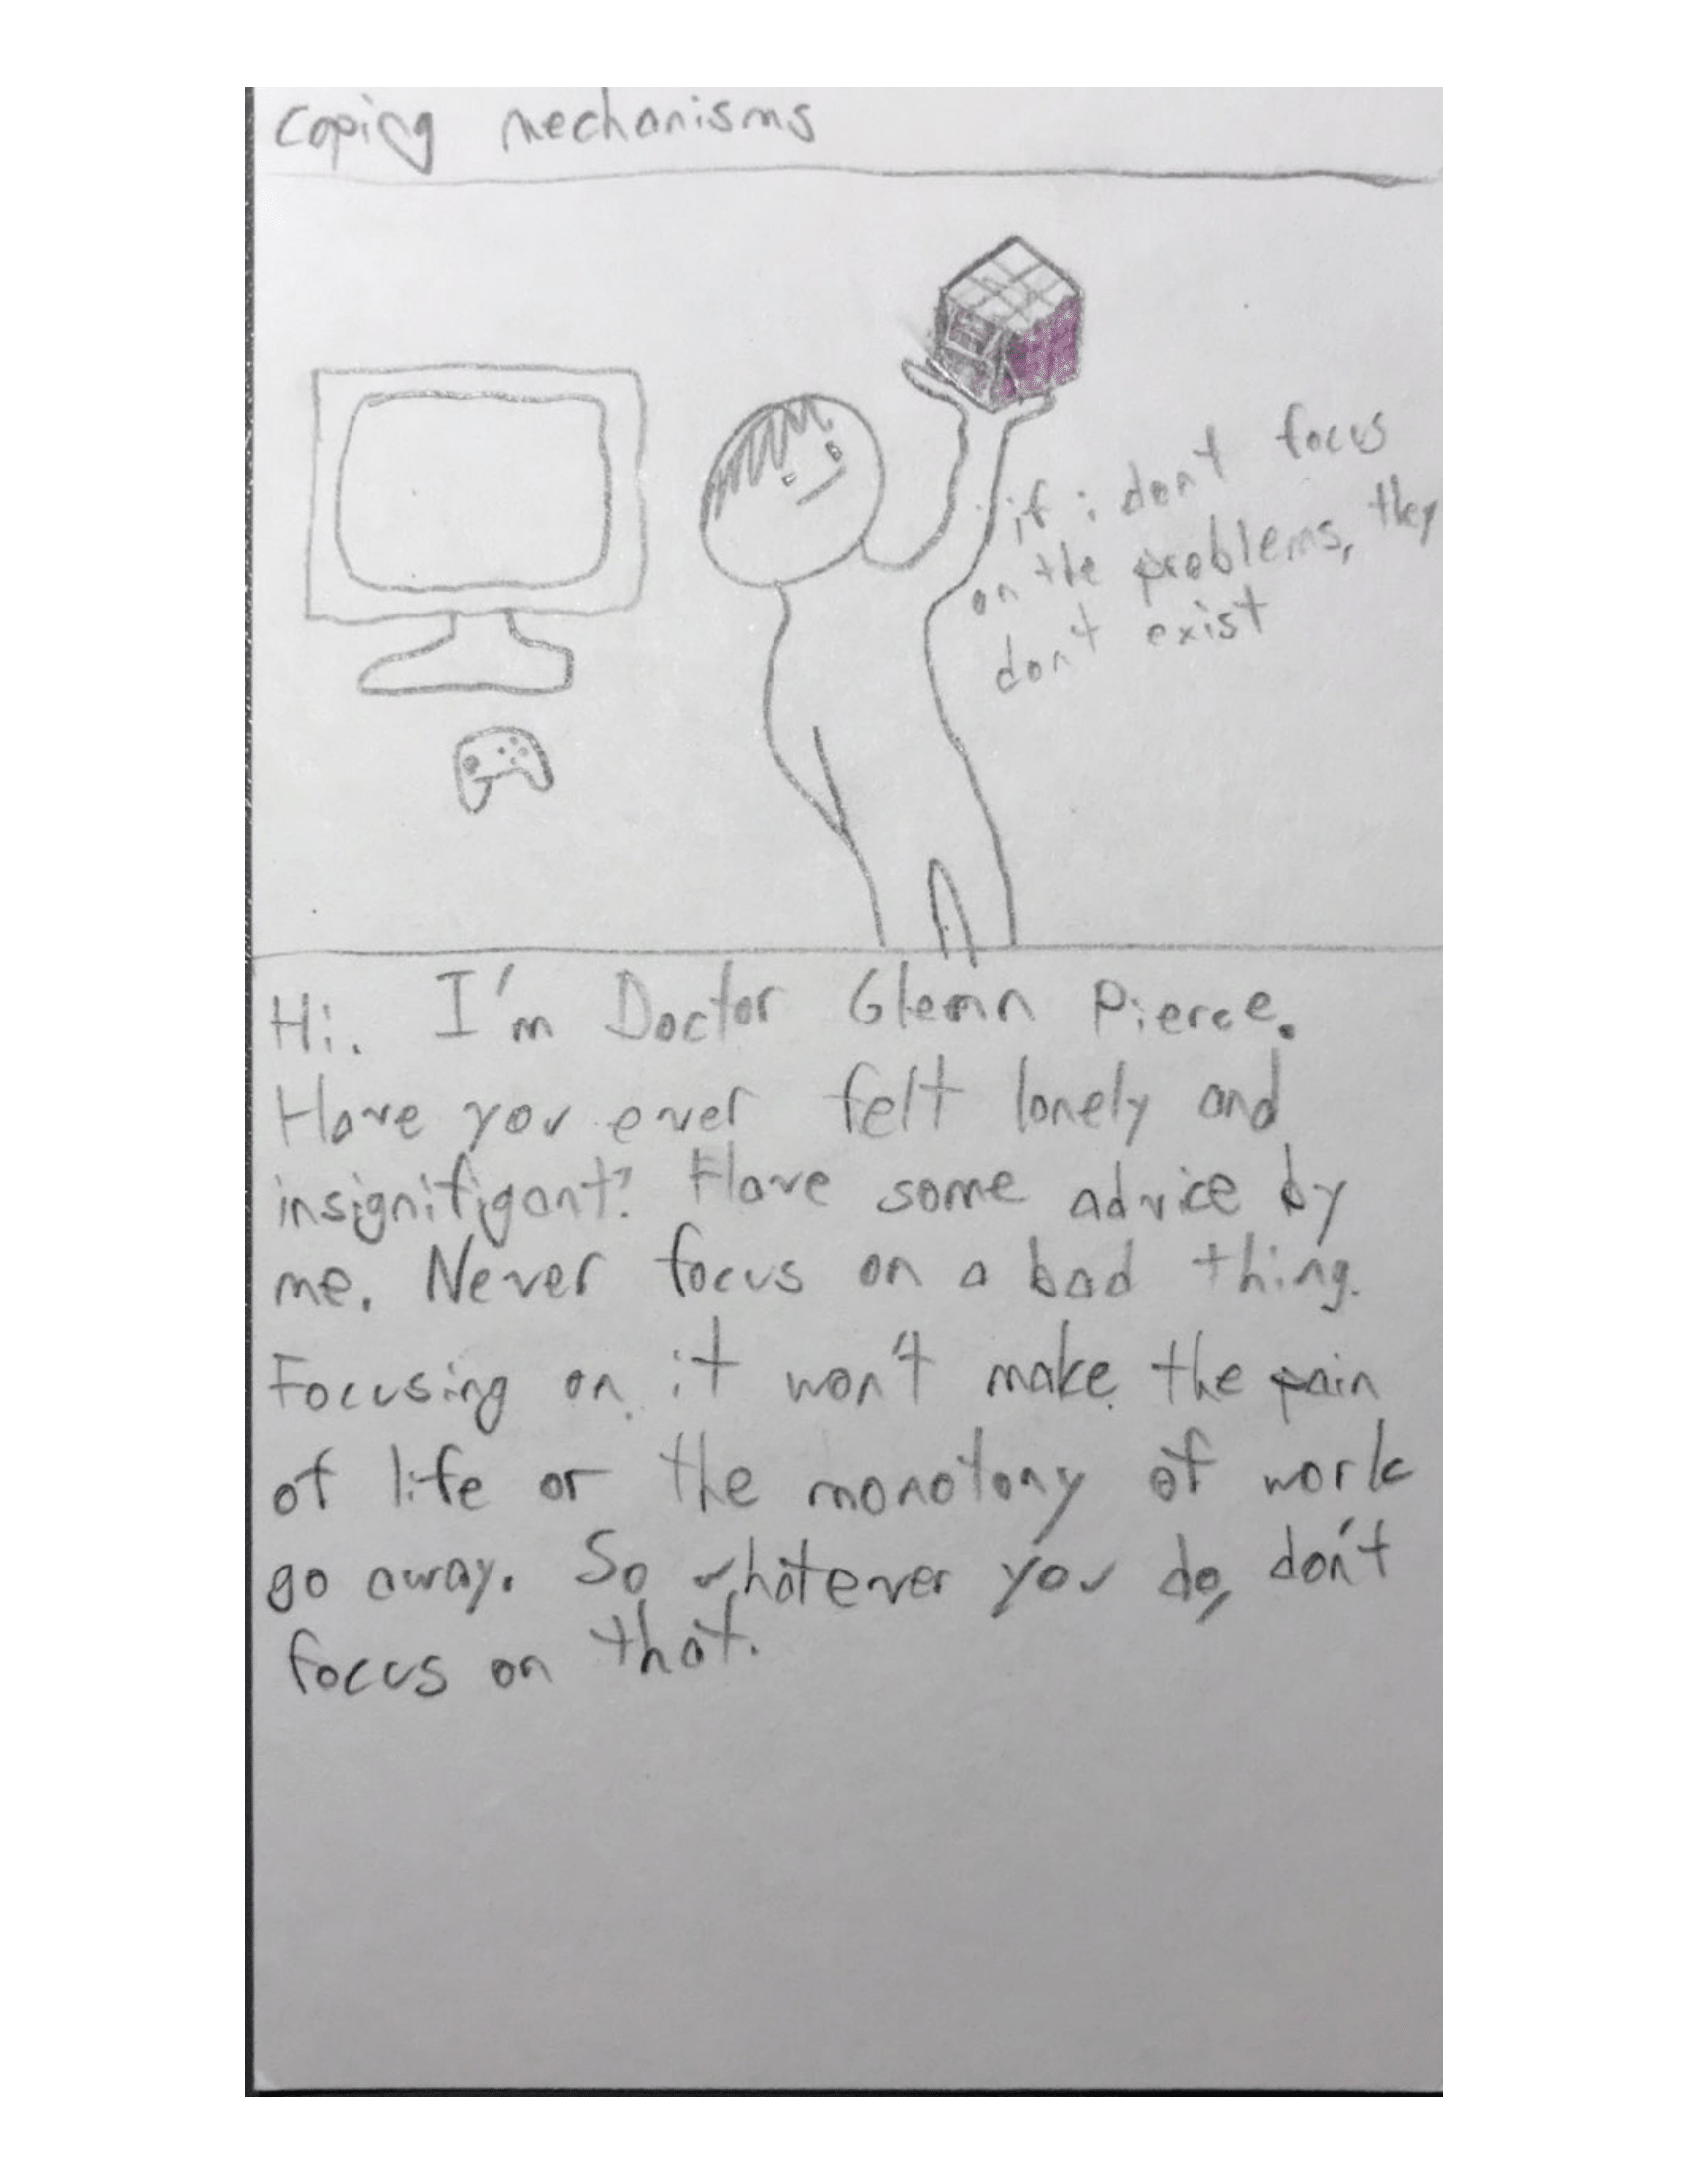 coping mechanisms
if i don't focus
on the problems, they
don't exist
Hi. I'm Doctor Glenn Pierce.
Have you ever felt lonely and
insignifigant? Have some advice by
me. Never focus on a bad thing.
Focusing on it won't make the pain
of life or the monotony of work
go away. So whatever you do, don't
focus on that.